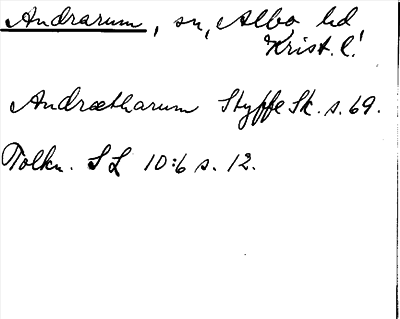 Andrarum, sn, Albo hd
Krist. l.
Andrætharum Styffe Sk. s. 69.
Tolkn. SL 10:6 s. 12.